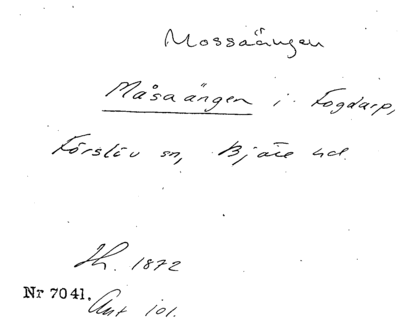 Mossaängen
Måsaängen i Fogdarp,
Förslöv sn, Bjäre hd.
Th. 1872
Nr 7041.
Ant 101.